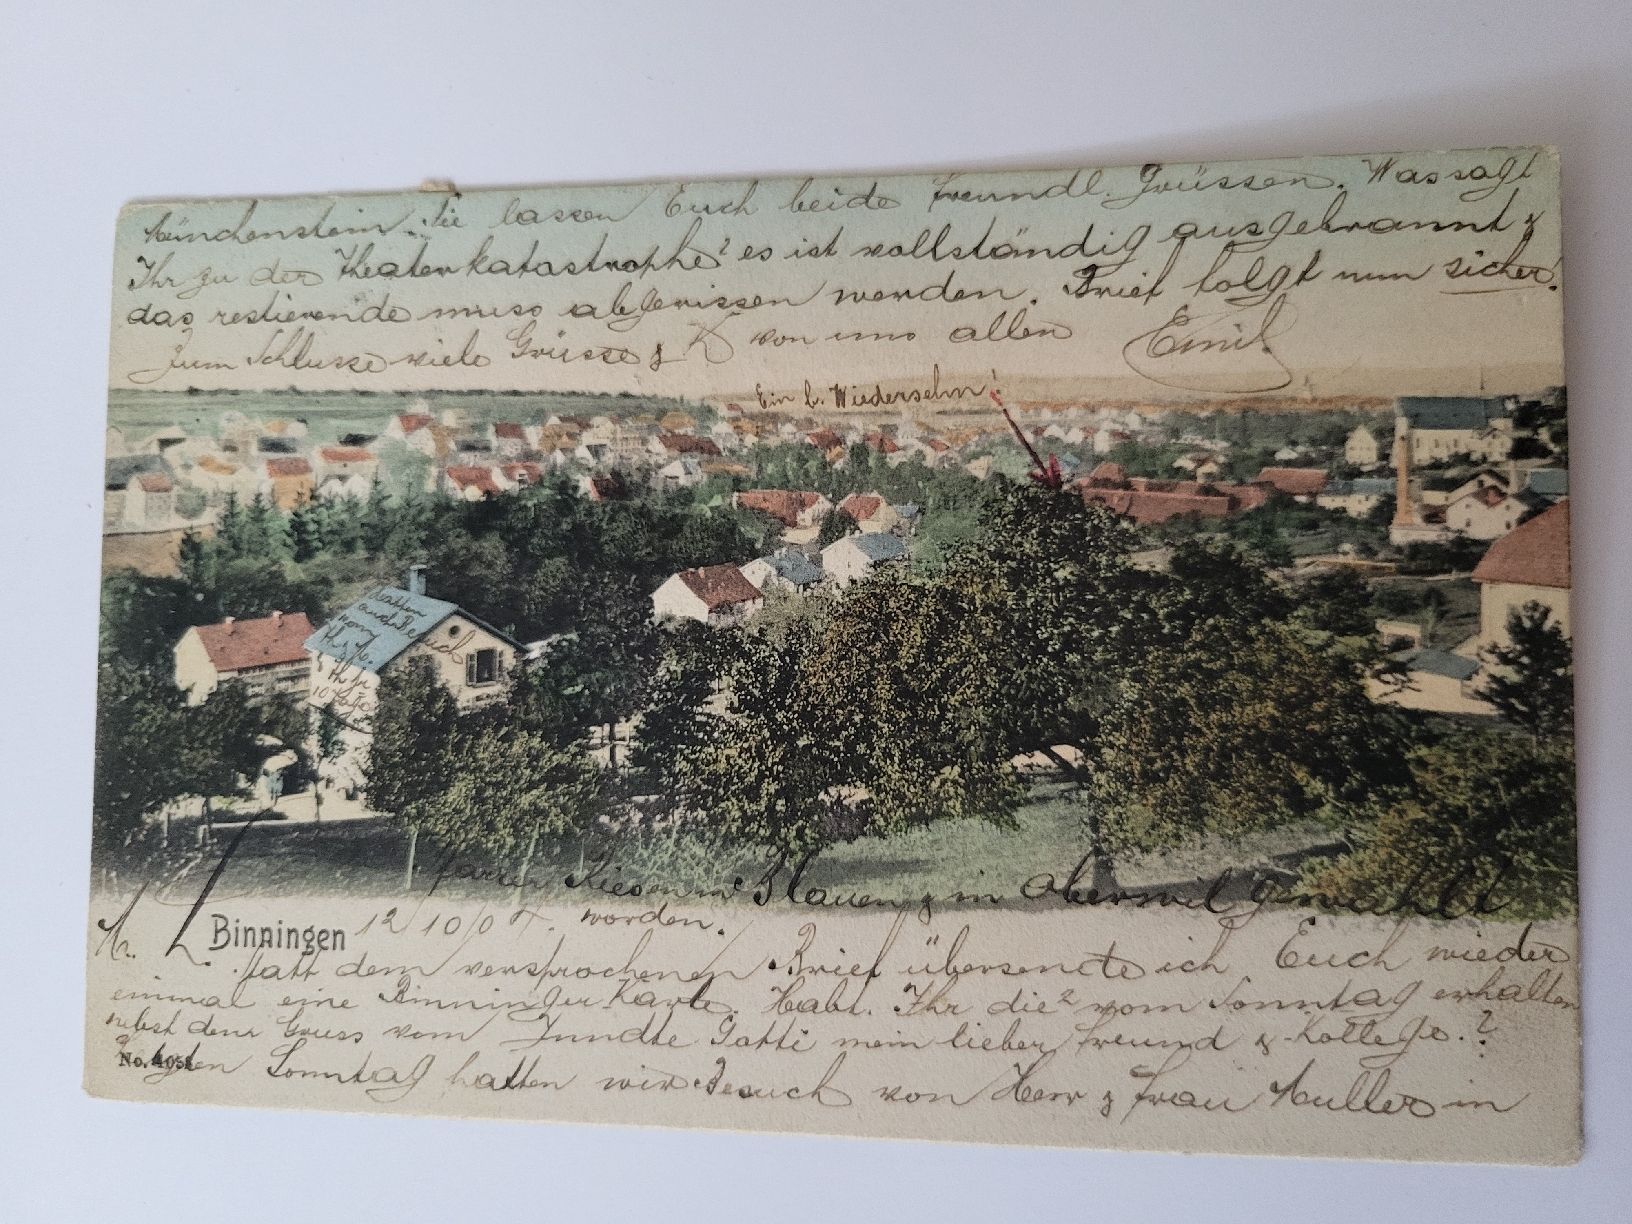 Münchenstein. Sie lassen Euch beide freundl. Grüssen. Was sagt
Ihr zu der Theaterkatastrophe? es ist vollständig ausgebrannt &
das restierende muss abgerissen werden. Brief folgt nun sicher!
Zum Schlusse viele Grüsse & K von uns allen Emil
Ein b. Wiedersehn!
hatten
auch Besuch
von
10
Pfarrer Riesen in Blauen & in Oberwil gewählt
worden.
Binningen 12/10/04.
M. L.
Statt dem versprochenen Brief übersende ich Euch wieder
einmal eine Binninger Karte. Habt Ihr die vom Sonntag erhalten
nebst dem Gruss vom mein lieber Freund & Kollege.?
No. 4051
Sonntag hatten wir Besuch von Herr & Frau Müller in